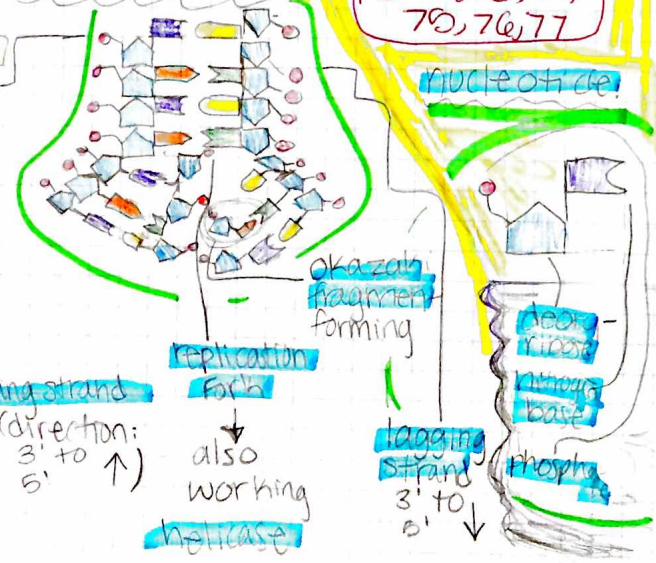 75,76,77
nucleotide
okazaki
fragment
forming
replication
fork
also
working
helicase
ng strand
(direction:
3' to
5' ↑)
lagging
strand
3' to
5' ↓
deoxy-
ribose
nitrogn
base
phospha